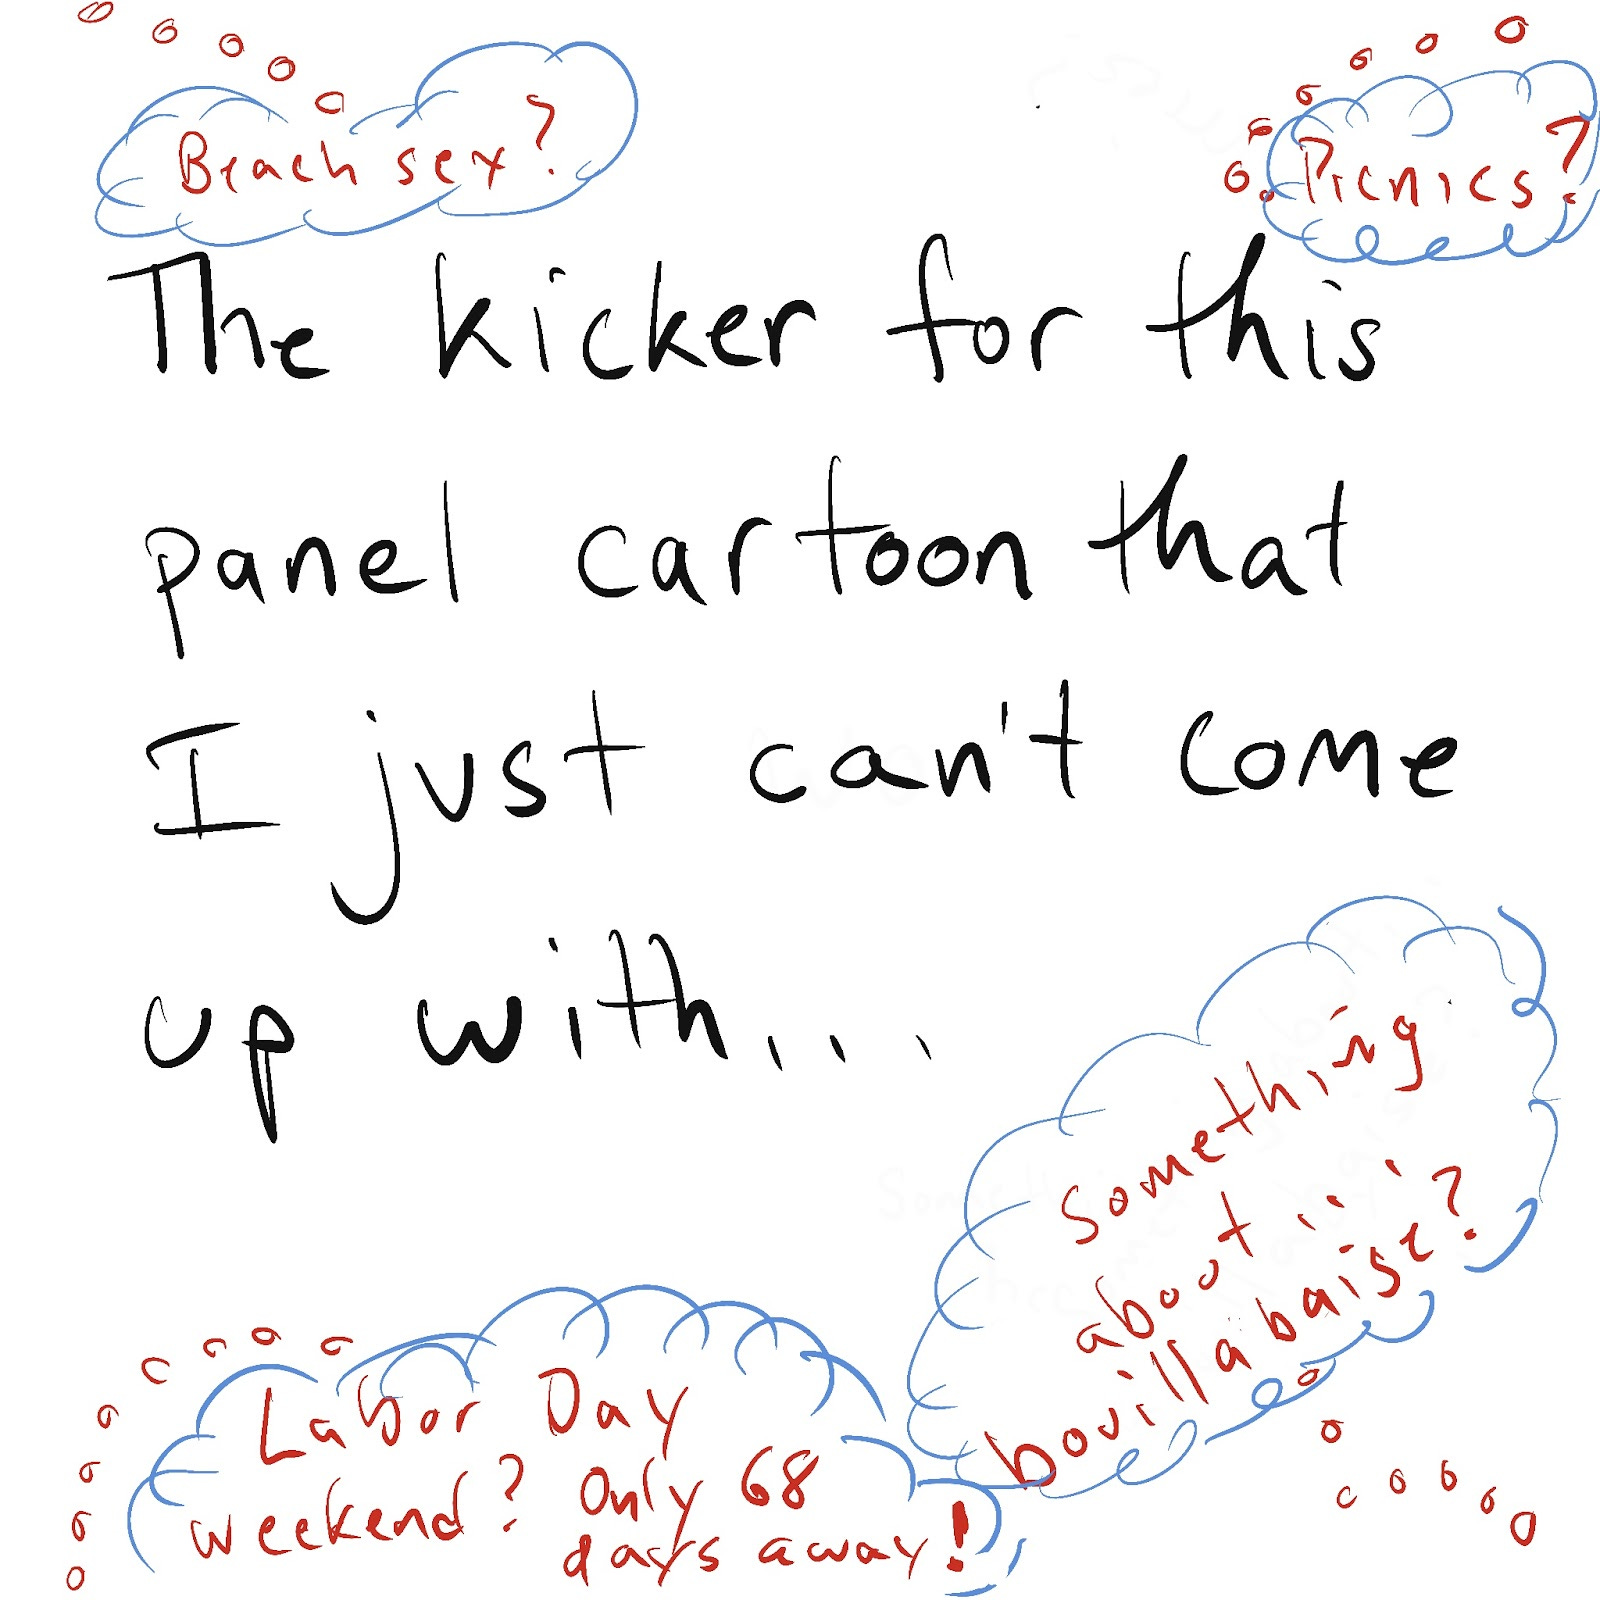 Beach sex?
Picnics?
The kicker for this
panel cartoon that
I just can't come
up with...
Something
about...
bouillabaise?
Labor Day
weekend? Only 68
days away!